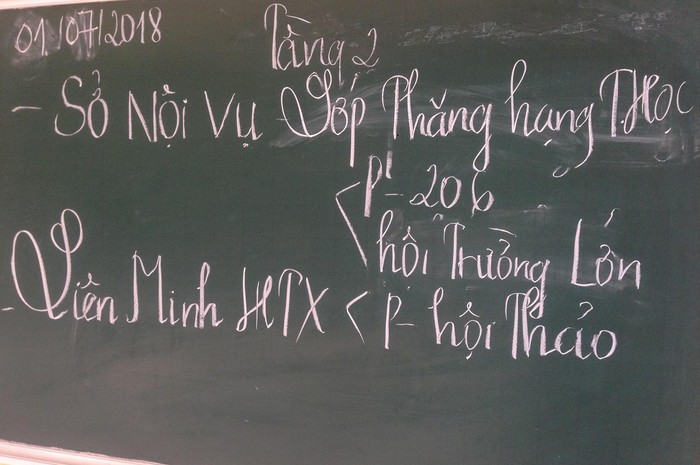 01/07/2018
Tầng 2
- Sở Nội Vụ Lớp Thăng hạng T.HỌC
< P - 206
hội Trường Lớn
- Liên Minh HTX < P - hội Thảo